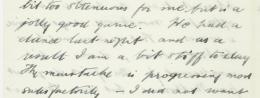 bit too strenuous for me, but is a
jolly good game. We had a
dance last night and as a
result I am a bit stiff to-day
My moustache is progressing most
satisfactorily - I did not want